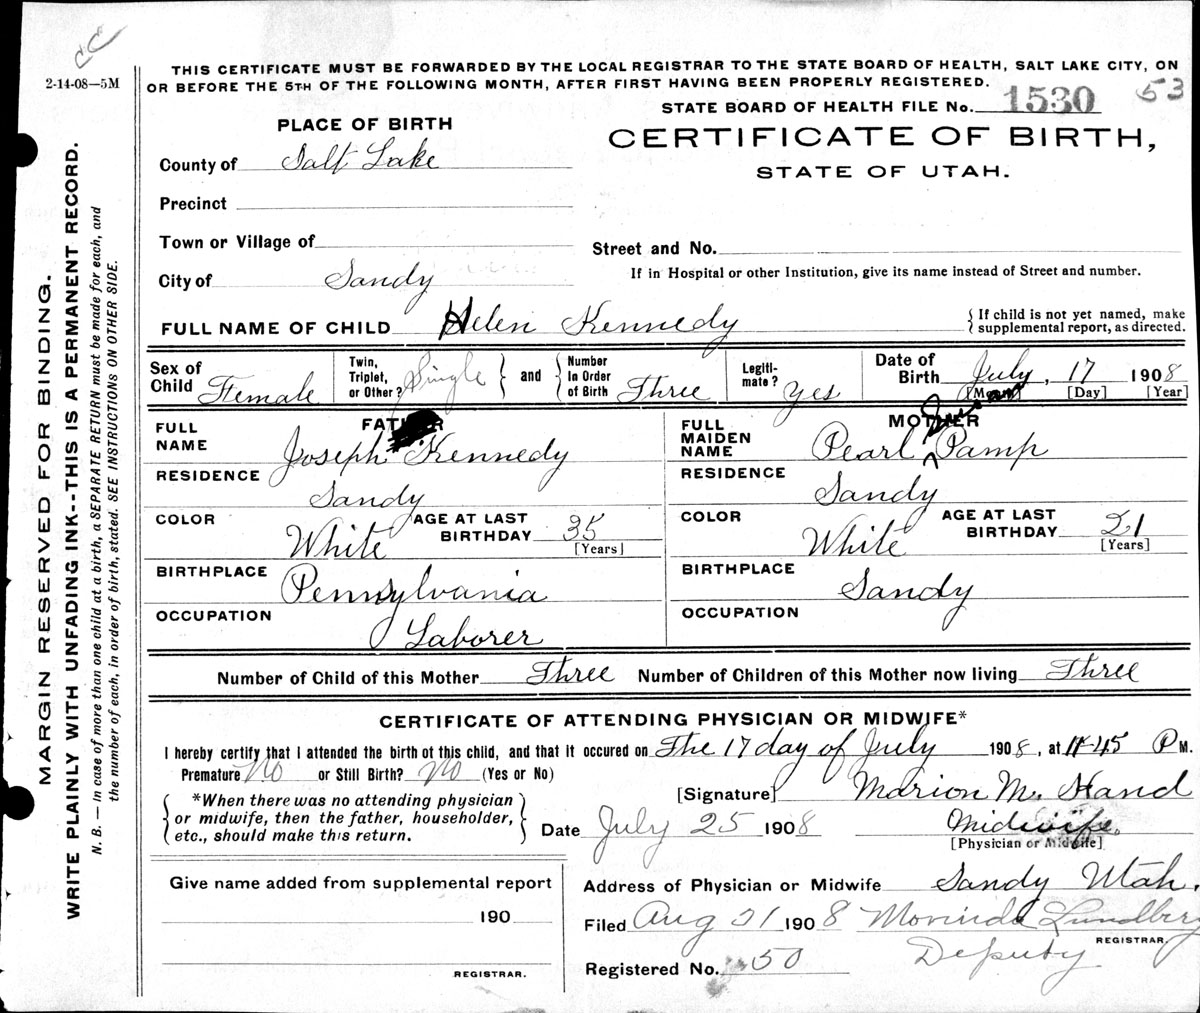 CC
2-14-08—5M
THIS CERTIFICATE MUST BE FORWARDED BY THE LOCAL REGISTRAR TO THE STATE BOARD OF HEALTH, SALT LAKE CITY, ON
OR BEFORE THE 5TH OF THE FOLLOWING MONTH, AFTER FIRST HAVING BEEN PROPERLY REGISTERED.
STATE BOARD OF HEALTH FILE No. 1530 53
CERTIFICATE OF BIRTH,
STATE OF UTAH.
PLACE OF BIRTH
County of Salt Lake
Precinct
Town or Village of
Street and No.
City of Sandy
If in Hospital or other Institution, give its name instead of Street and number.
FULL NAME OF CHILD Helen Kennedy { If child is not yet named, make
supplemental report, as directed.
Sex of Child Female
Twin, Triplet, or Other? Single } and { Number In Order of Birth Three
Legiti-mate? Yes
Date of Birth July, 17 1908
[Month] [Day] [Year]
FATHER
FULL NAME Joseph Kennedy
RESIDENCE Sandy
COLOR White AGE AT LAST BIRTHDAY 35 [Years]
BIRTHPLACE Pennsylvania
OCCUPATION Laborer
MOTHER
FULL MAIDEN NAME Pearl Pamp
RESIDENCE Sandy
COLOR White AGE AT LAST BIRTHDAY 21 [Years]
BIRTHPLACE Sandy
OCCUPATION
Number of Child of this Mother Three Number of Children of this Mother now living Three
CERTIFICATE OF ATTENDING PHYSICIAN OR MIDWIFE*
I hereby certify that I attended the birth of this child, and that it occured on The 17 day of July 1908, at 11-45 P M.
Premature No or Still Birth? No (Yes or No)
{ *When there was no attending physician
or midwife, then the father, householder,
etc., should make this return. }
[Signature] Marion M. Hand
Date July 25 1908 Midwife.
[Physician or Midwife]
Give name added from supplemental report
190
REGISTRAR.
Address of Physician or Midwife Sandy Utah.
Filed Aug 21 1908 Morinda Lundberg
REGISTRAR.
Deputy
Registered No. 50
MARGIN RESERVED FOR BINDING.
WRITE PLAINLY WITH UNFADING INK--THIS IS A PERMANENT RECORD.
N. B. — In case of more than one child at a birth, a SEPARATE RETURN must be made for each, and
the number of each, in order of birth, stated. SEE INSTRUCTIONS ON OTHER SIDE.